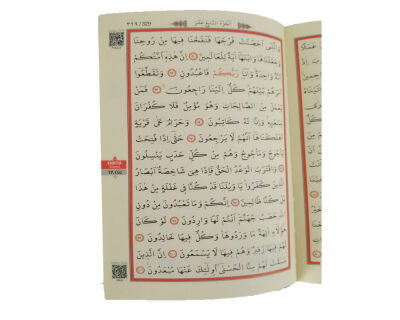 329
الجزء السابع عشر
وَالَّتِي اَحْصَنَتْ فَرْجَهَا فَنَفَخْنَا فِيهَا مِنْ رُوحِنَا
وَجَعَلْنَاهَا وَابْنَهَا اٰيَةً لِلْعَالَمِينَ اِنَّ هٰذِهِ اُمَّتُكُمْ
اُمَّةً وَاحِدَةً وَاَنَا رَبُّكُمْ فَاعْبُدُونِ وَتَقَطَّعُوا
اَمْرَهُمْ بَيْنَهُمْ كُلٌّ اِلَيْنَا رَاجِعُونَ فَمَنْ
يَعْمَلْ مِنَ الصَّالِحَاتِ وَهُوَ مُؤْمِنٌ فَلَا كُفْرَانَ
لِسَعْيِهِ وَاِنَّا لَهُ كَاتِبُونَ وَحَرَامٌ عَلٰى قَرْيَةٍ
اَهْلَكْنَاهَا اَنَّهُمْ لَا يَرْجِعُونَ حَتّٰى اِذَا فُتِحَتْ
يَأْجُوجُ وَمَأْجُوجُ وَهُمْ مِنْ كُلِّ حَدَبٍ يَنْسِلُونَ
وَاقْتَرَبَ الْوَعْدُ الْحَقُّ فَاِذَا هِيَ شَاخِصَةٌ اَبْصَارُ
الَّذِينَ كَفَرُوا يَا وَيْلَنَا قَدْ كُنَّا فِي غَفْلَةٍ مِنْ هٰذَا
بَلْ كُنَّا ظَالِمِينَ اِنَّكُمْ وَمَا تَعْبُدُونَ مِنْ دُونِ
اللّٰهِ حَصَبُ جَهَنَّمَ اَنْتُمْ لَهَا وَارِدُونَ لَوْ كَانَ
هٰؤُلَاءِ اٰلِهَةً مَا وَرَدُوهَا وَكُلٌّ فِيهَا خَالِدُونَ
لَهُمْ فِيهَا زَفِيرٌ وَهُمْ فِيهَا لَا يَسْمَعُونَ اِنَّ الَّذِينَ
سَبَقَتْ لَهُمْ مِنَّا الْحُسْنٰى اُولٰئِكَ عَنْهَا مُبْعَدُونَ
17. Cüz